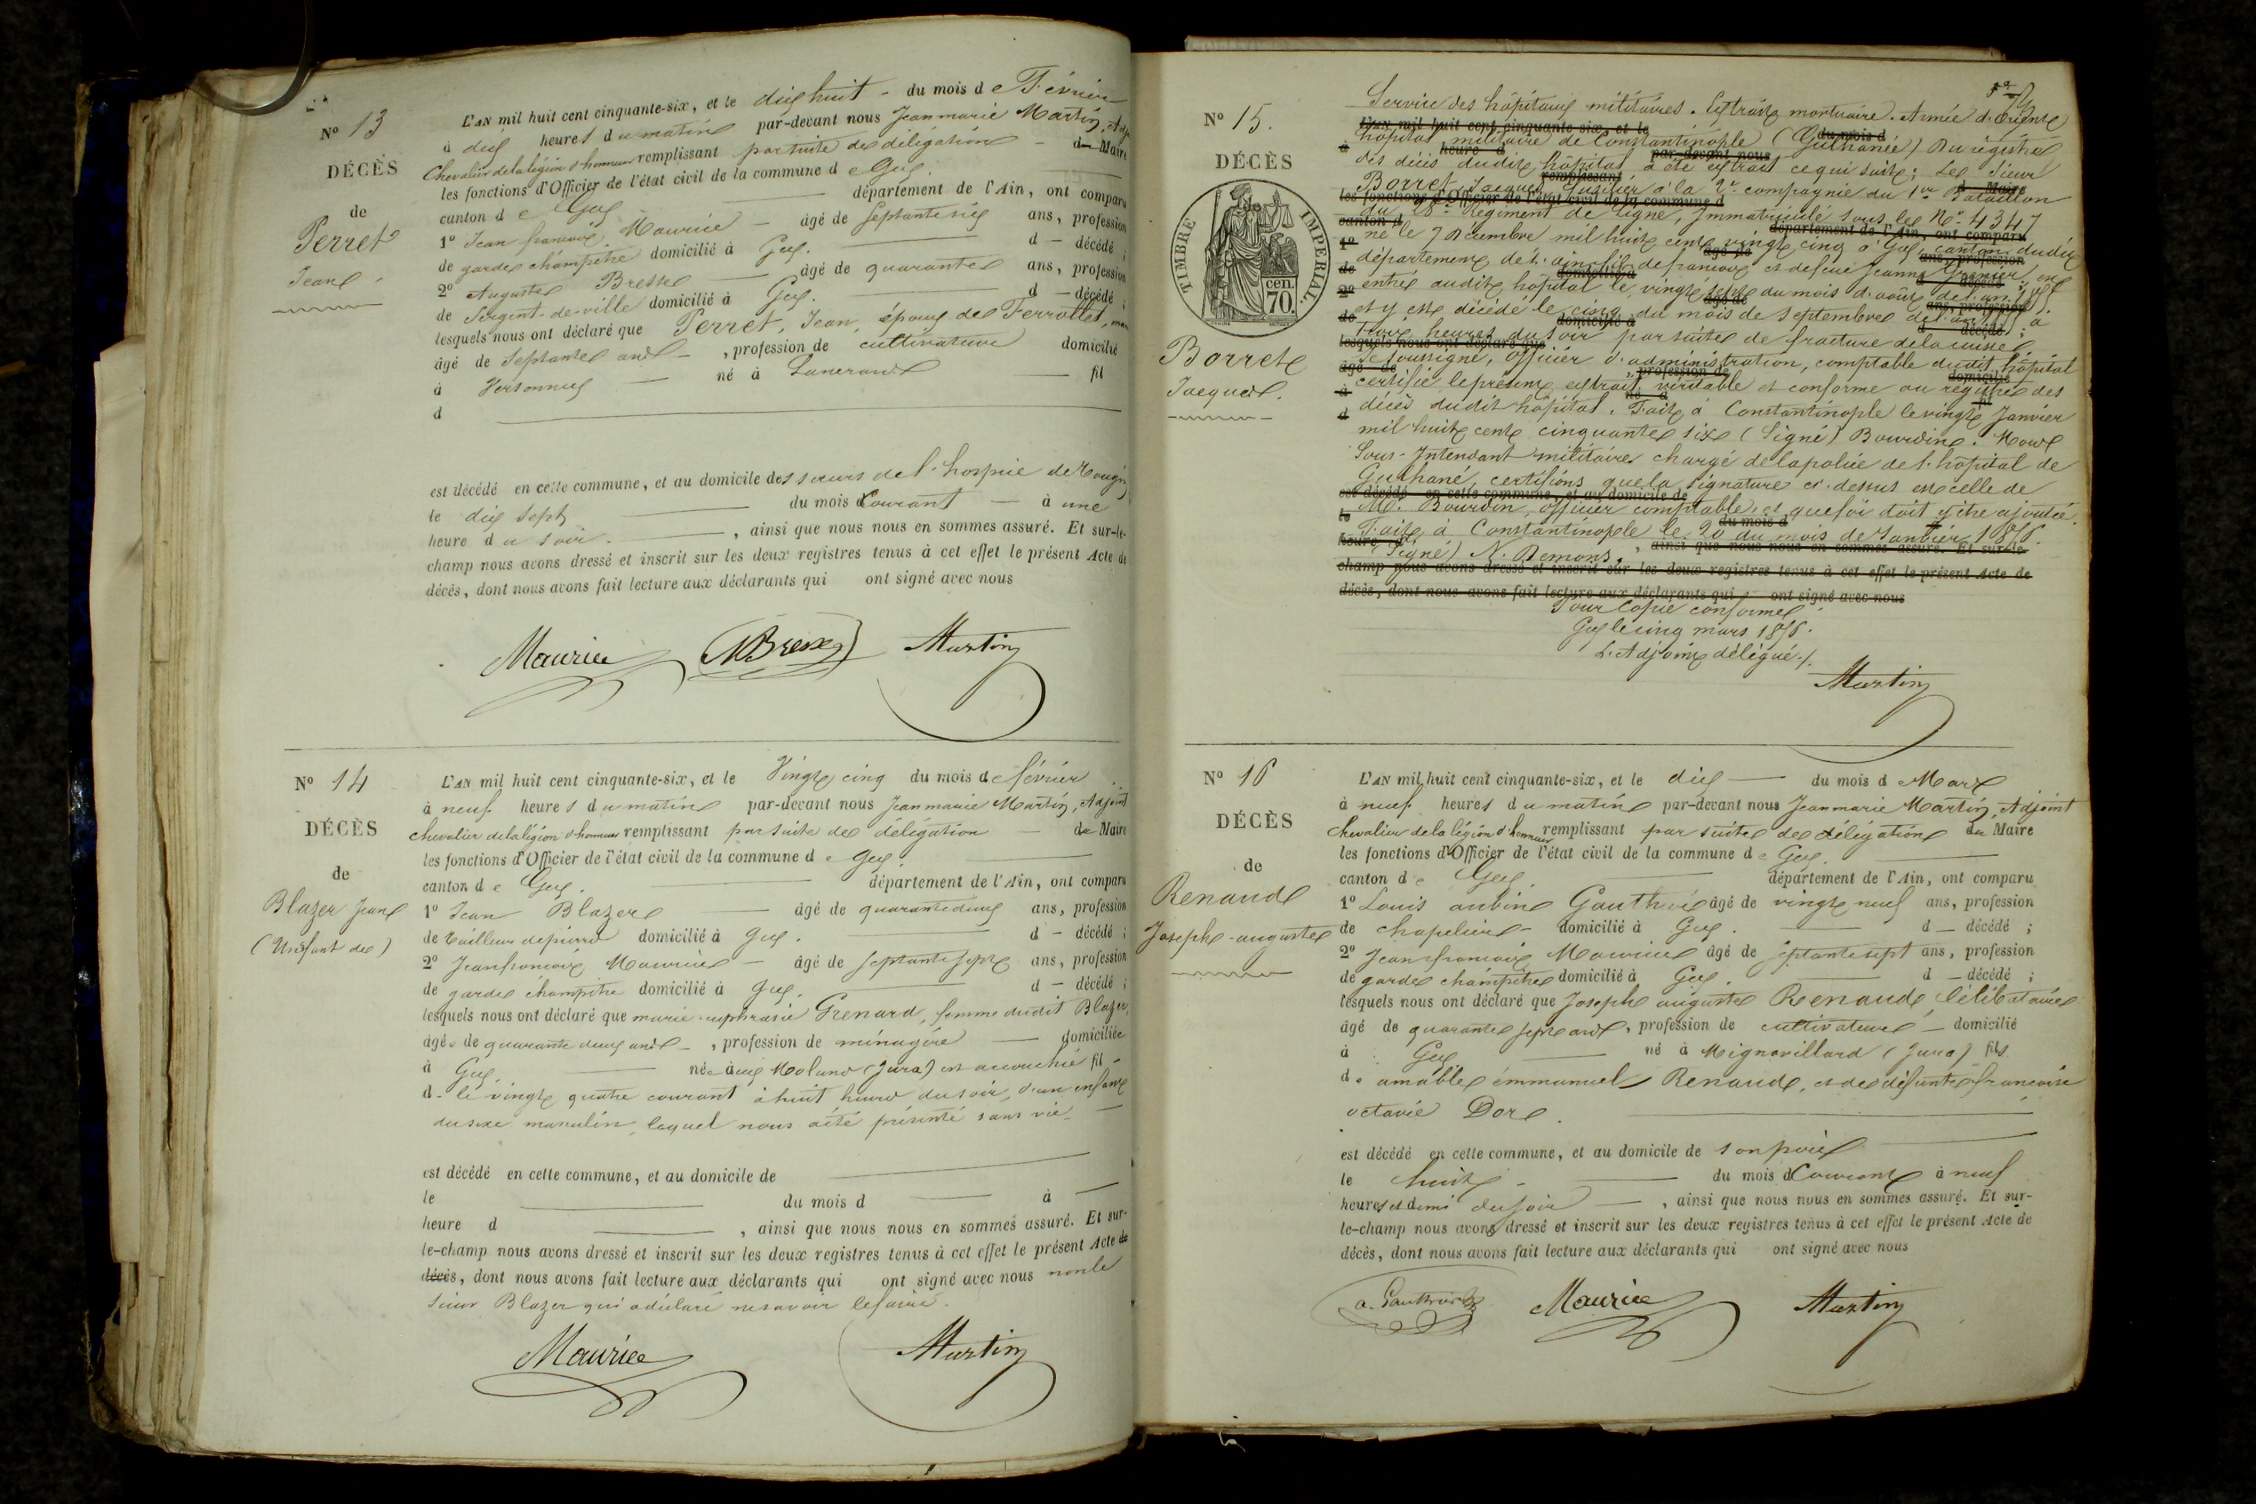 N° 13
DÉCÈS
de
Perret
Jean
L'AN mil huit cent cinquante-six, et le dix huit - du mois de Février
à dix heures du matin par-devant nous Jean marie Martin, Adj
Chevalier de la légion d'honneur remplissant par suite de délégation - d- Maire
les fonctions d'Officier de l'état civil de la commune de Gex.
canton de Gex département de l'Ain, ont comparu
1° Jean françois Maurice - âgé de septante six ans, profession
de garde champêtre domicilié à Gex. d - décédé ;
2° Auguste Bresse âgé de quarante ans, profession
de Sergent-de-ville domicilié à Gex. d - décédé ;
lesquels nous ont déclaré que Perret, Jean, époux de Ferrollet,
âgé de septante ans - , profession de cultivateur domicilié
à Versonnex - né à fil
d
est décédé en cette commune, et au domicile des sœurs de l'hospice de Tougin
le dix sept du mois Courant - à une
heure du soir. , ainsi que nous nous en sommes assuré. Et sur-le-
champ nous avons dressé et inscrit sur les deux registres tenus à cet effet le présent Acte de
décès, dont nous avons fait lecture aux déclarants qui ont signé avec nous
Maurice ABresse Martin
N° 14
DÉCÈS
de
Blazer Jean
(Un enfant de)
L'AN mil huit cent cinquante-six, et le Vingt cinq du mois de février
à neuf heures du matin par-devant nous Jean marie Martin, Adjoint
chevalier de la légion d'honneur remplissant par suite de délégation - de Maire
les fonctions d'Officier de l'état civil de la commune de Gex.
canton de Gex. département de l'Ain, ont comparu
1° Jean Blazer âgé de quarante deux ans, profession
de tailleur de pierre domicilié à Gex. d - décédé ;
2° Jean françois Maurice - âgé de septante sept ans, profession
de garde champêtre domicilié à Gex. d - décédé ;
lesquels nous ont déclaré que marie euphrasie Grenard, femme dudit Blazer,
âgée de quarante deux ans - , profession de ménagère domiciliée
à Gex née aux Molunes (Jura) est accouchée fil -
d - le vingt quatre courant à huit heures du soir, d'un enfant
du sexe masculin, lequel nous a été présenté sans vie -
est décédé en cette commune, et au domicile de
le du mois d à
heure d , ainsi que nous nous en sommes assuré. Et sur-
le-champ nous avons dressé et inscrit sur les deux registres tenus à cet effet le présent Acte de
décès, dont nous avons fait lecture aux déclarants qui ont signé avec nous non le
sieur Blazer qui a déclaré ne savoir le faire.
Maurice Martin
N° 15.
DÉCÈS
TIMBRE IMPÉRIAL
cen. 70.
Borret
Jacques.
Service des hôpitaux militaires. Extrait mortuaire. Armée d'Orient
L'AN mil huit cent cinquante-six, et le du mois d
hôpital militaire de Constantinople (Gulhanée) Du régistre
à heure d par-devant nous
des décès dudit hôpital a été extrait ce qui suit; Le Sieur
remplissant d Maire
Borret Jacques, fusilier à la 2e compagnie du 1er Bataillon
les fonctions d'Officier de l'état civil de la commune d
du Régiment de ligne, Immatriculé sous le N° 4347
canton d département de l'Ain, ont comparu
né le 7 Décembre mil huit cent vingt cinq à Gex, canton dudit
1° âgé de ans, profession
département de l'ain, fils de françois et de feue Jeanne Grenier est
de domicilié à d décédé ;
entré audit hôpital le vingt sept du mois d'août de l'an 1855.
2° âgé de ans, profession
et y est décédé le cinq du mois de septembre de l'an 1855 à
de domicilié à d décédé ;
heures du soir par suite de fracture de la cuisse
lesquels nous ont déclaré que
Je soussigné, officier d'administration, comptable dudit hôpital
âgé de , profession de domicilié
certifie le présent extrait véritable et conforme au registre des
à né à fil
décès dudit hôpital. Fait à Constantinople le vingt Janvier
d
mil huit cent cinquante six (Signé) Bourdin. Nous
Sous-Intendant militaire chargé de la police de l'hôpital de
Gulhané, certifions que la signature ci-dessus est celle de
est décédé en cette commune, et au domicile de
M. Bourdin, officier comptable, et que foi doit y être ajoutée.
le du mois d
Fait à Constantinople le 20 du mois de Janvier 1856.
heure d , ainsi que nous nous en sommes assuré. Et sur-le-
(Signé) N. Demons.
champ nous avons dressé et inscrit sur les deux registres tenus à cet effet le présent Acte de
décès, dont nous avons fait lecture aux déclarants qui ont signé avec nous
Pour Copie conforme
Gex le cinq mars 1856.
L'Adjoint délégué
Martin
N° 16
DÉCÈS
de
Renaud
Joseph-auguste
L'AN mil huit cent cinquante-six, et le dix du mois de Mars
à neuf heures du matin par-devant nous Jean marie Martin, Adjoint
chevalier de la légion d'honneur remplissant par suite de délégation du Maire
les fonctions d'Officier de l'état civil de la commune de Gex.
canton de Gex. département de l'Ain, ont comparu
1° Louis aubin Gauthier âgé de vingt neuf ans, profession
de chapelier - domicilié à Gex. d - décédé ;
2° Jean françois Maurice âgé de septante sept ans, profession
de garde champêtre domicilié à Gex. d - décédé ;
lesquels nous ont déclaré que Joseph auguste Renaud, Célibataire
âgé de quarante sept ans, profession de cultivateur - domicilié
à Gex né à Mignovillard (Jura) fils
de amable émmanuel Renaud, et de défunte françoise
octavie Dore.
est décédé en cette commune, et au domicile de son père
le huit - du mois Courant à neuf
heures et demi du soir , ainsi que nous nous en sommes assuré. Et sur-
le-champ nous avons dressé et inscrit sur les deux registres tenus à cet effet le présent Acte de
décès, dont nous avons fait lecture aux déclarants qui ont signé avec nous
a. Gauthier Maurice Martin